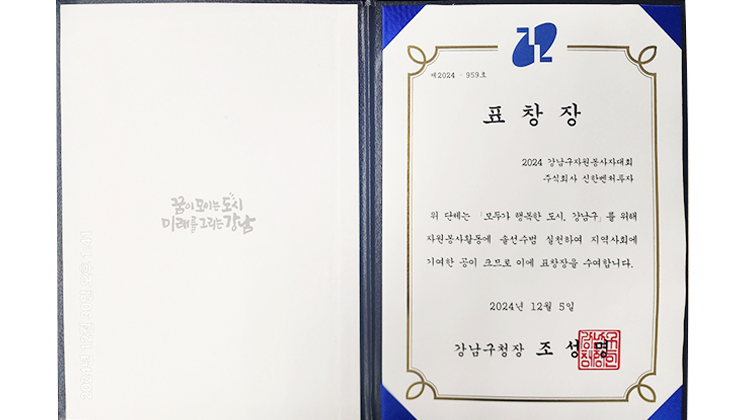 꿈이 모이는 도시
미래를 그리는 강남
제2024 - 959호
표 창 장
2024 강남구자원봉사자대회
주식회사 신한벤처투자
위 단체는 「모두가 행복한 도시, 강남구」를 위해
자원봉사활동에 솔선수범 실천하여 지역사회에
기여한 공이 크므로 이에 표창장을 수여합니다.
2024년 12월 5일
강남구청장 조 성 명